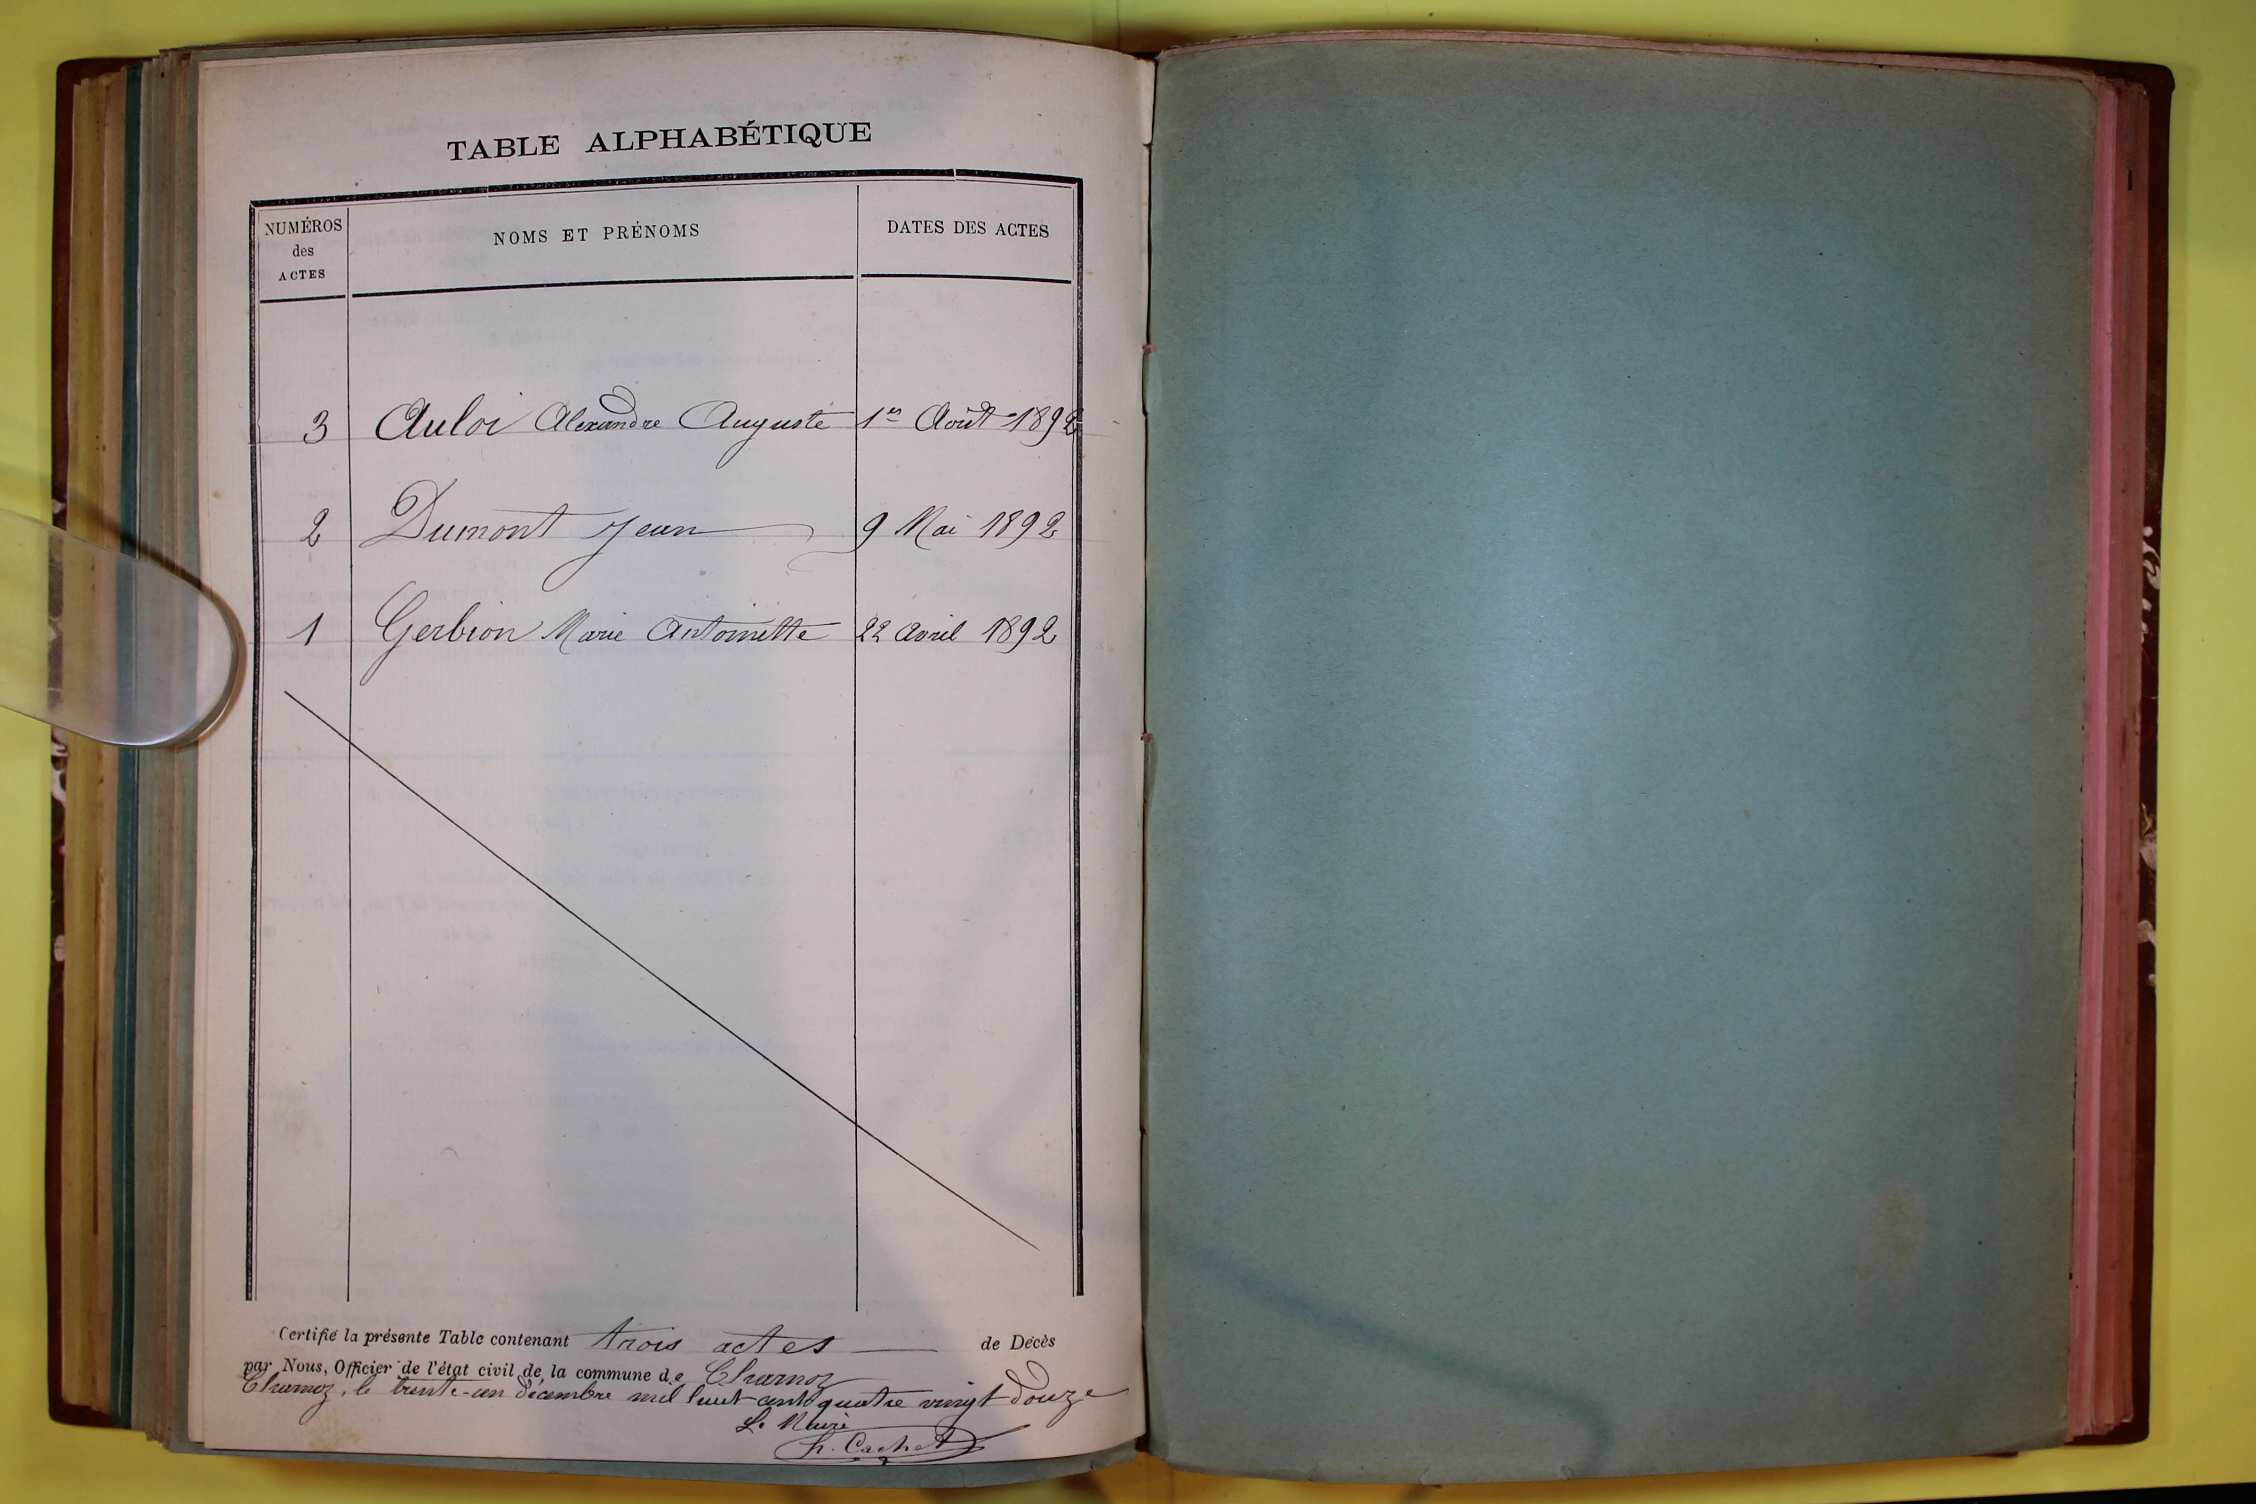 TABLE ALPHABÉTIQUE
NUMÉROS des ACTES NOMS ET PRÉNOMS DATES DES ACTES
3 Auloi Alexandre Auguste 1er Août 1892
2 Dumont Jean 9 Mai 1892
1 Gerbion Marie Antoinette 22 avril 1892
Certifié la présente Table contenant trois actes de Décès
par Nous, Officier de l'état civil de la commune de Charnoz
Charnoz, le trente-un décembre mil huit cent quatre vingt douze
Le Maire
h. Cachet